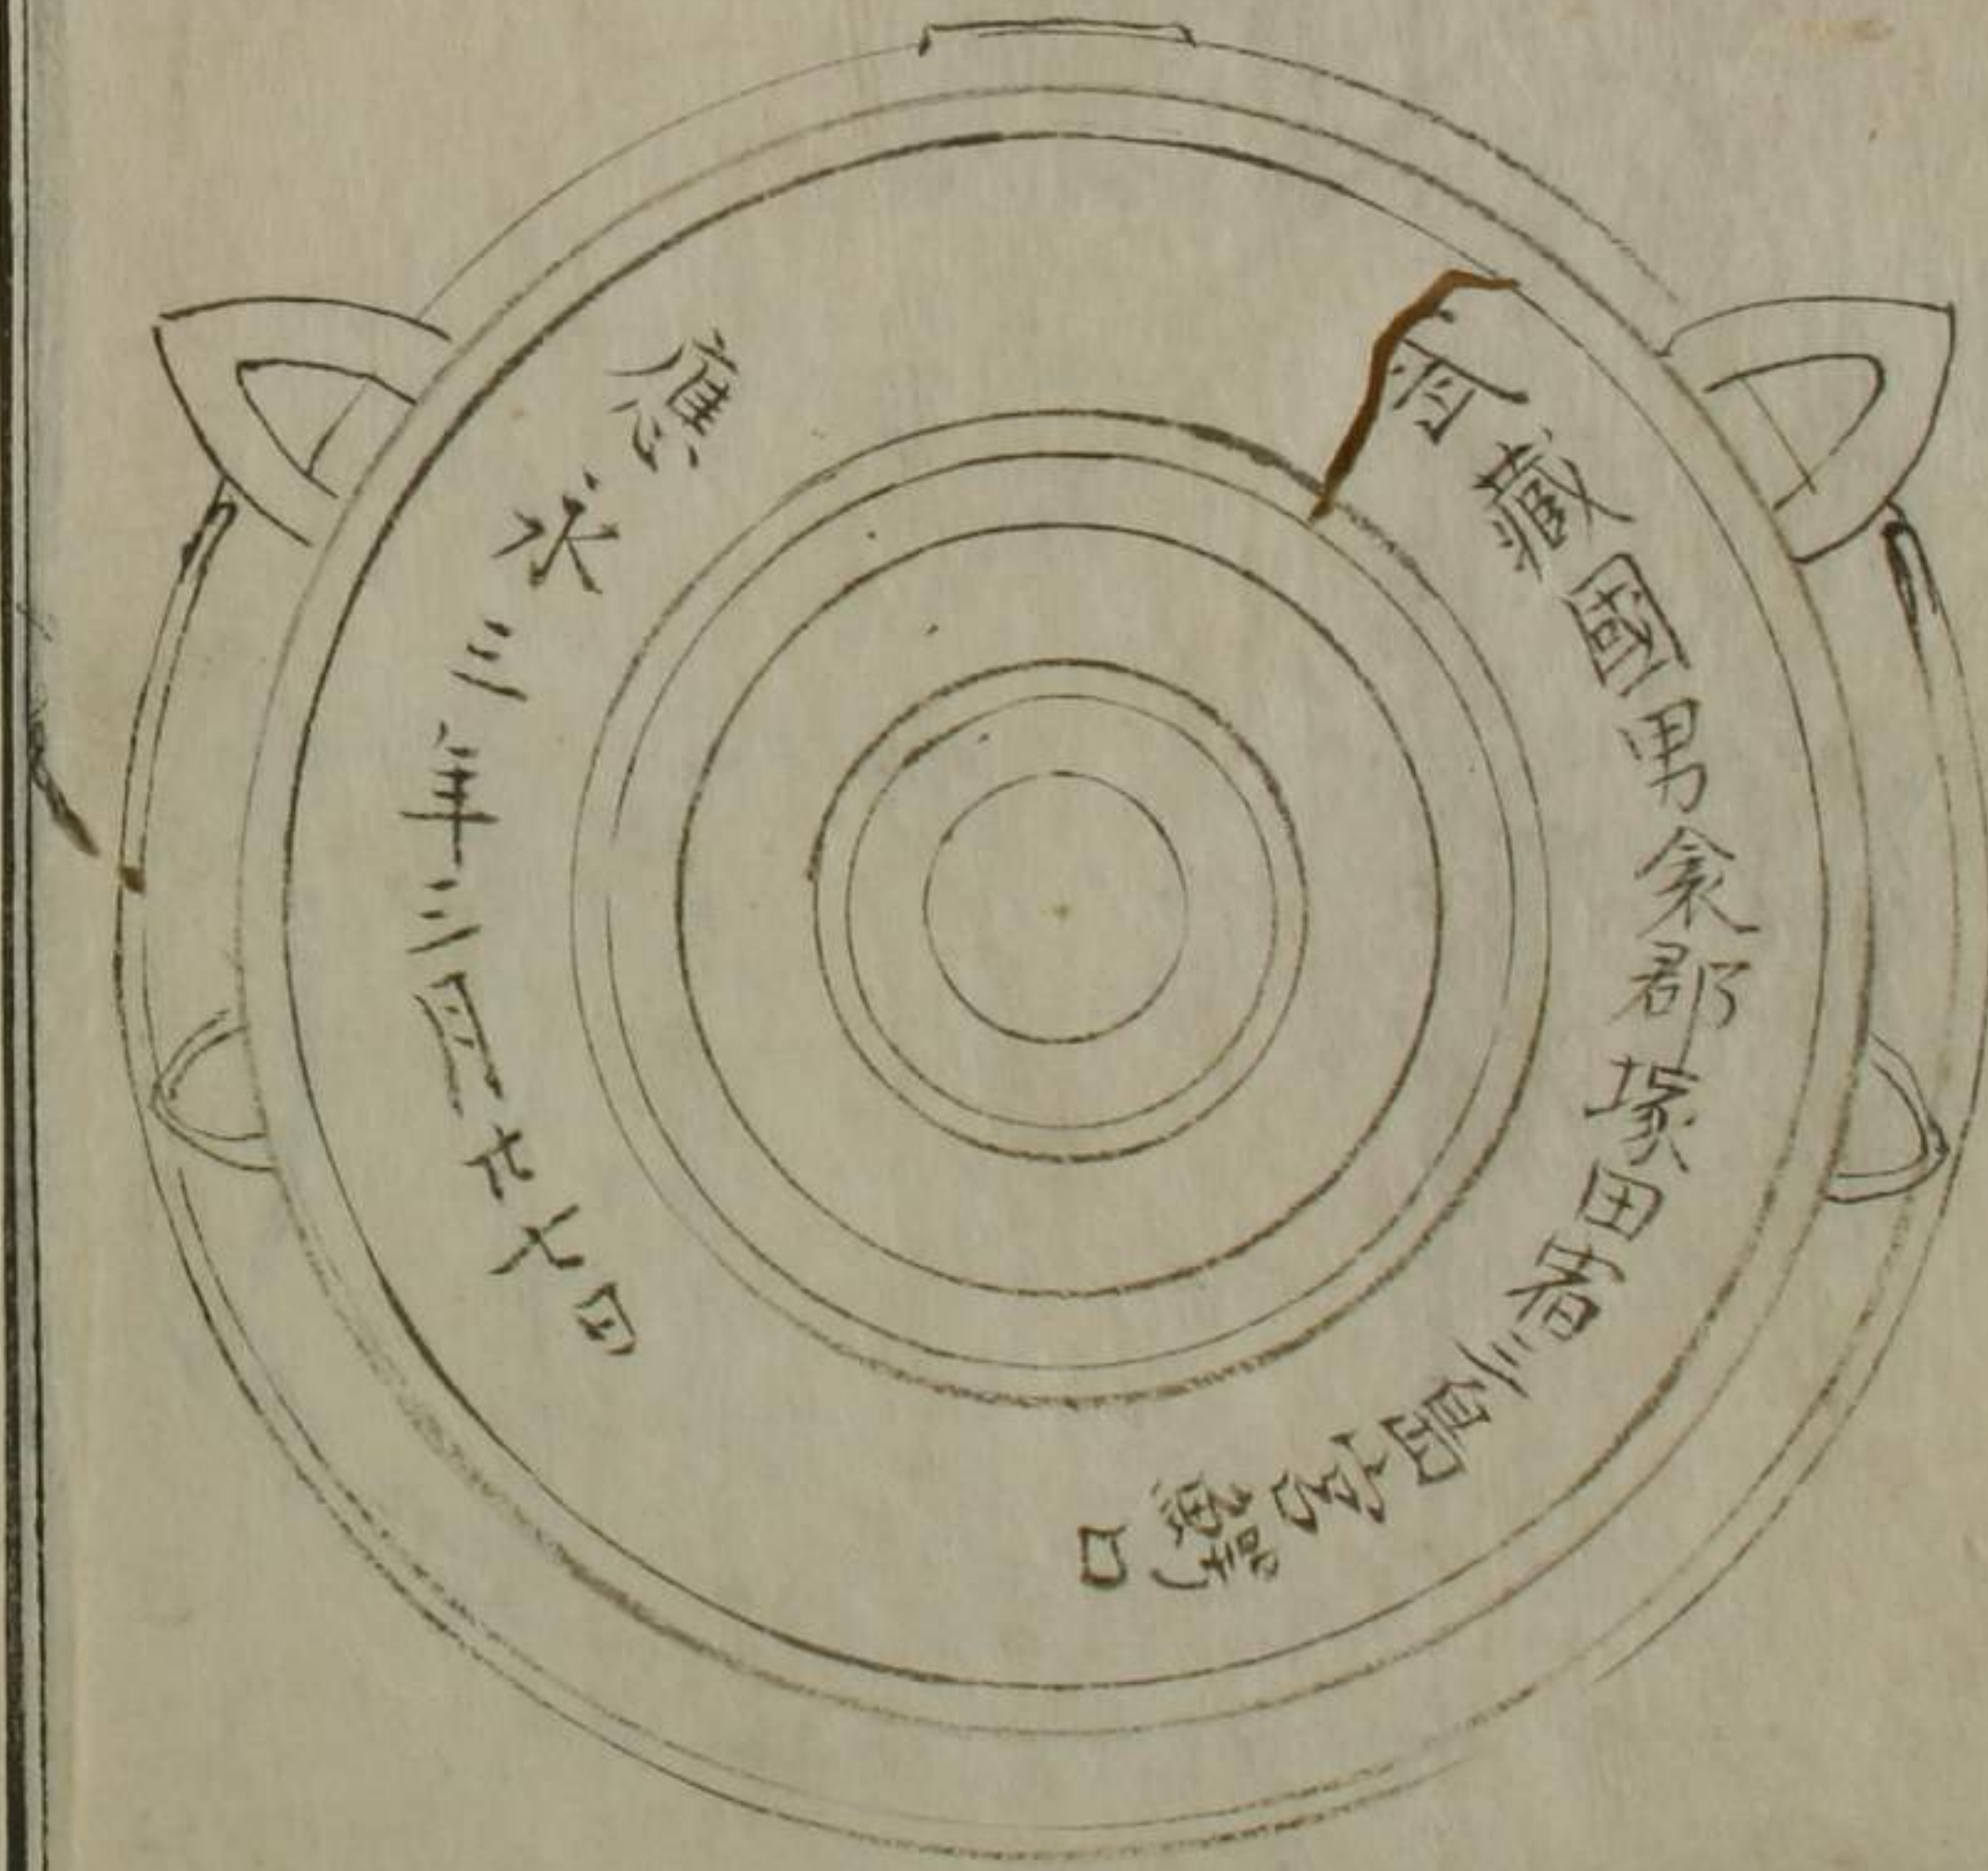 藏國男衾郡塚田者三宮鰐口
應永三年三月廿七日